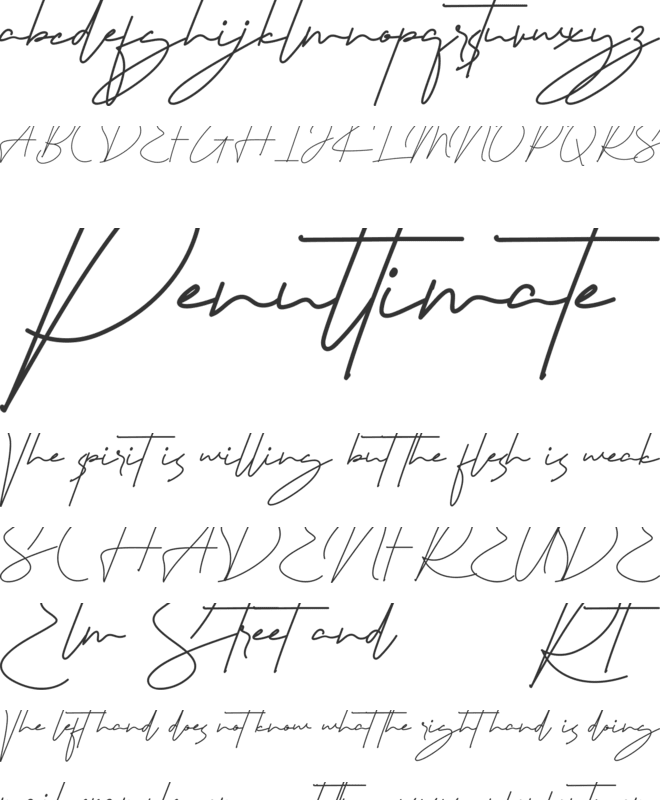 abcdefghijklmnopqrstuvwxyz
ABCDEFGHIJKLMNOPQRS
Penultimate
The spirit is willing but the flesh is weak
SCHADENFREUDE
Elm Street and RT
The left hand does not know what the right hand is doing